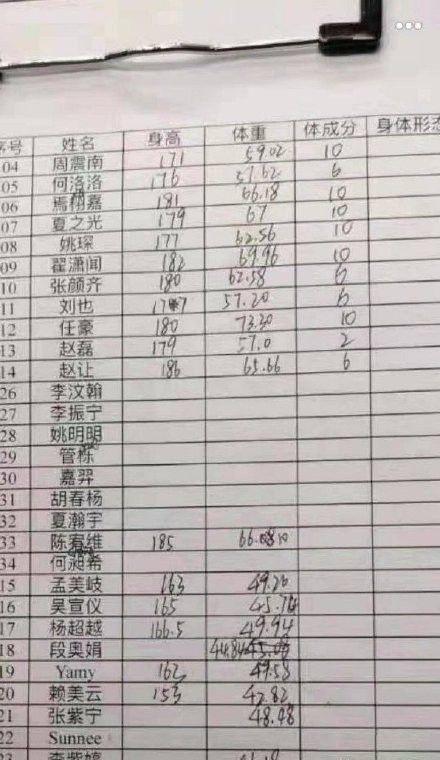 序号 姓名 身高 体重 体成分 身体形态
04 周震南 171 59.02 10
05 何洛洛 176 57.62 6
06 焉栩嘉 181 66.18 10
07 夏之光 179 67 10
08 姚琛 177 62.56 10
09 翟潇闻 182 69.96 10
10 张颜齐 180 62.58 6
11 刘也 57.20 6
12 任豪 180 73.30 10
13 赵磊 179 57.0 2
14 赵让 186 65.66 6
26 李汶翰
27 李振宁
28 姚明明
29 管栎
30 嘉羿
31 胡春杨
32 夏瀚宇
33 陈宥维 185
34 何昶希
15 孟美岐 163 49.20
16 吴宣仪 165
17 杨超越 166.5 49.94
18 段奥娟
19 Yamy 162 49.58
20 赖美云 153 42.82
21 张紫宁 48.48
22 Sunnee
23 李紫婷